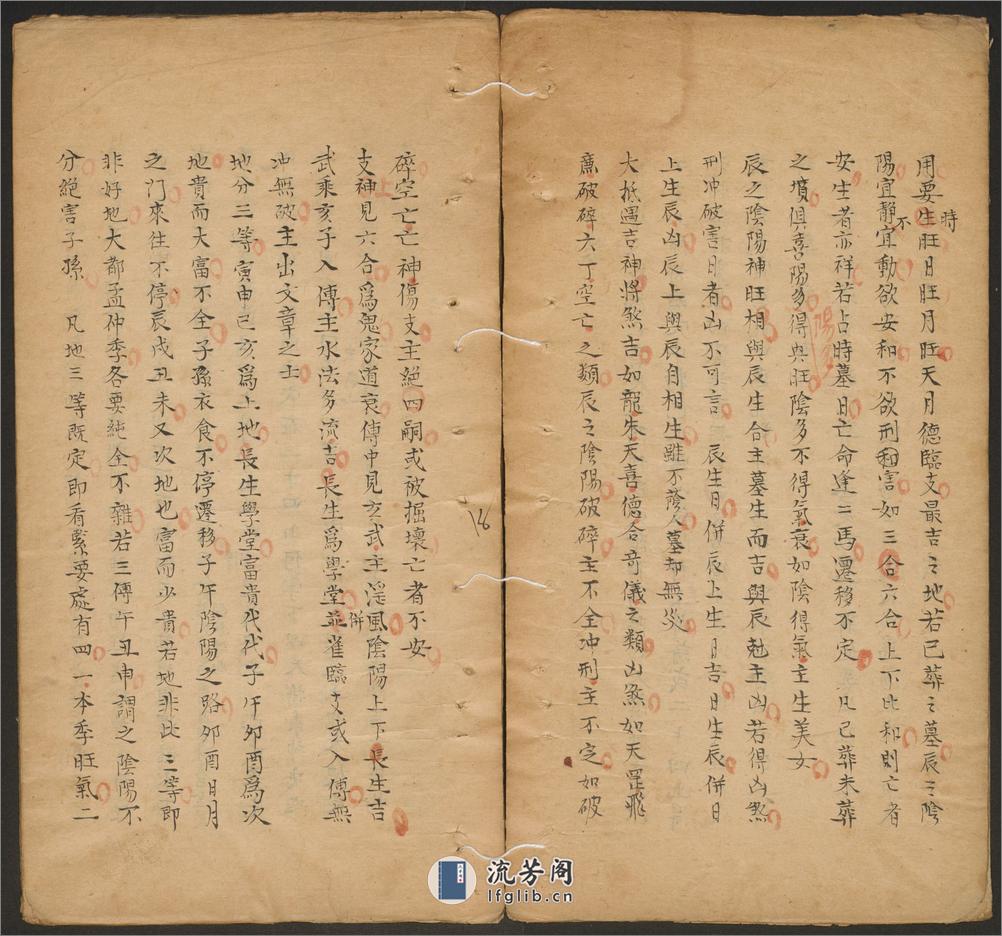 用要生旺日旺月旺天月德臨支最吉之地若已葬之墓辰之陰
時
陽宜靜宜動欲安和不欲刑和害如三合六合上下比和則亡者
不
安生者亦祥若占時墓日亡命逢二馬遷移不定 凡已葬未葬
之墳俱喜陽多得與旺陰多不得氣衰如陰得氣主生美女
陽多
辰之陰陽神旺相與辰生合主墓生而吉與辰尅主凶若得凶煞
刑冲破害日者凶不可言 辰生日併辰上生日吉日生辰併日
上生辰凶辰上與辰自相生雖不蔭人墓却無災
大抵遇吉神將煞吉如龍朱天喜德合奇儀之類凶煞如天罡飛
廉破碎六丁空亡之類辰之陰陽破碎主不全冲刑主不定如破
碎空亡亡神傷支主絕四嗣或被掘壞亡者不安
支神見六合爲鬼家道衰傳中見玄武主淫風陰陽上下長生吉
上
武乘亥子入傳主水法多流吉長生爲學堂並雀臨支或入傳無
併
冲無破主出文章之士
地分三等寅申巳亥爲上地長生學堂富貴代代子午卯酉爲次
地貴而大富不全子孫衣食不停遷移子午陰陽之路卯酉日月
之門來往不停辰戌丑未又次地也富而少貴若地非此三等即
非好地大都孟仲季各要純全不雜若三傳午丑申謂之陰陽不
分絕害子孫 凡地三等既定即看緊要處有四一本季旺氣二
18
流芳阁
lfglib.cn